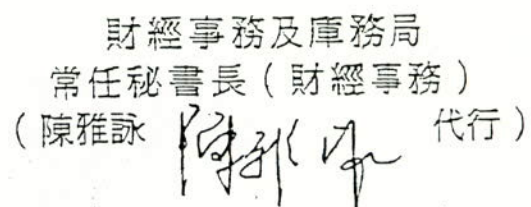 財經事務及庫務局
常任秘書長(財經事務)
(陳雅詠 陳雅詠 代行)